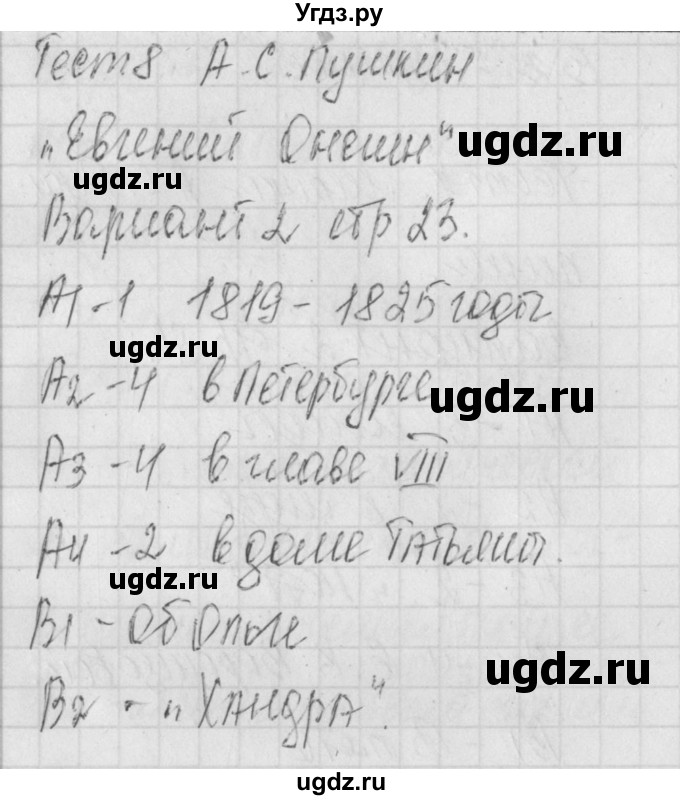 Угдз.ру
Тест 8 А.С.Пушкин
„Евгений Онегин“
ugdz.ru
ugdz.ru
Вариант 2 стр 23.
А1-1 1819-1825 годы
ugdz.ru
А2-4 в Петербурге
ugdz.ru
А3-4 в главе VIII
А4-2 в доме Татьяны.
ugdz.ru
В1-Об Ольге
ugdz.ru
В2-„Хандра“.
ugdz.ru